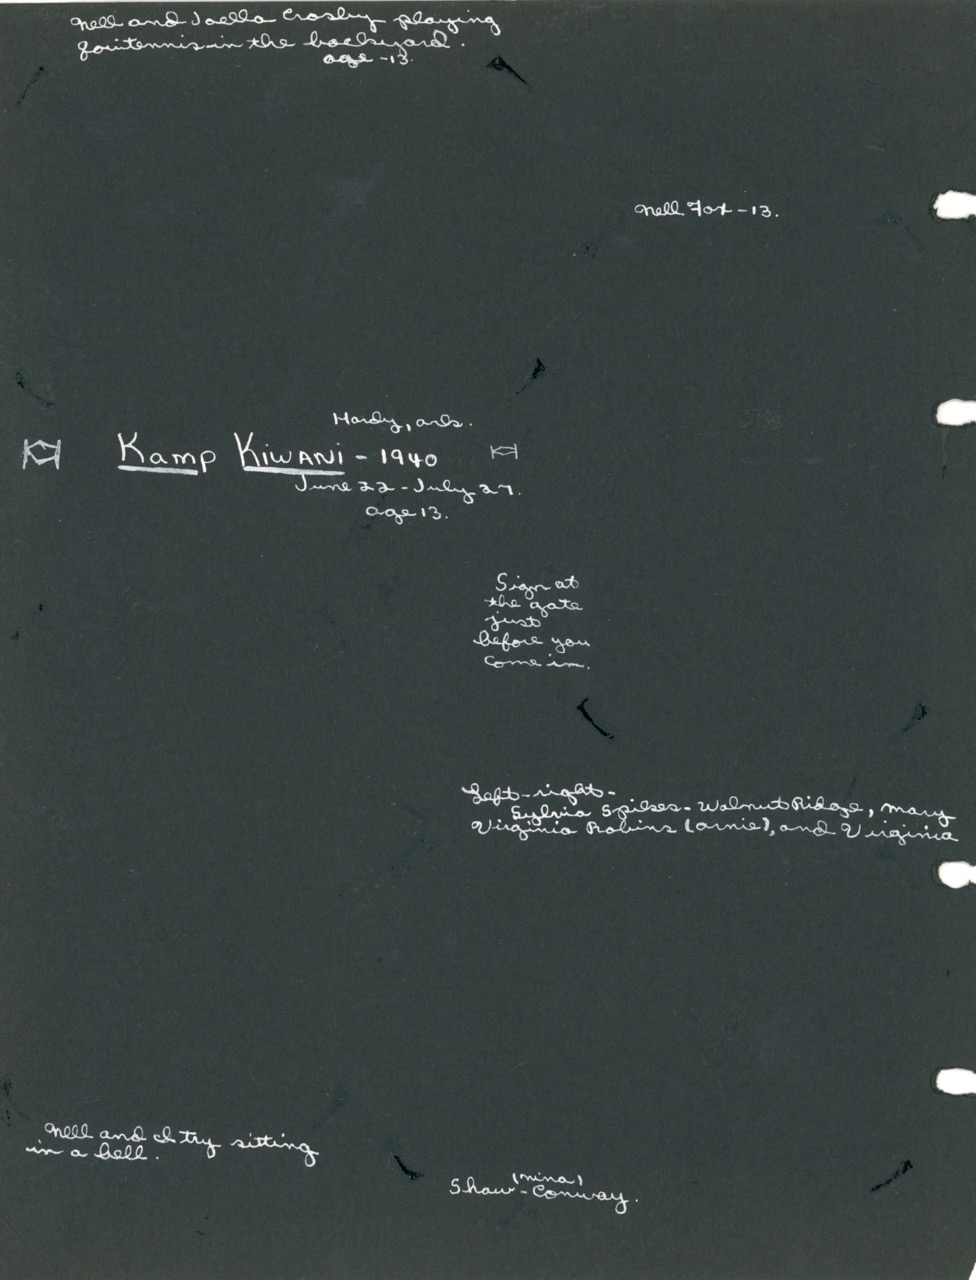 Nell and Joella Crosby playing
in the backyard.
age -13.
Nell Fox - 13.
Hardy, Ark.
Kamp Kiwani - 1940
June 22 - July 27.
age 13.
Sign at
the gate
just
before you
come in.
Left-right-
Sylvia Spikes - Walnut Ridge, Mary
Virginia Robins (Arnie), and Virginia
Nell and I try sitting
in a bell.
(Nina)
Shaw - Conway.